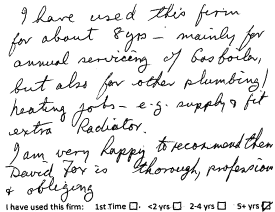 I have used this firm
for about 8 yrs - mainly for
annual servicing of Gas boiler,
but also for other plumbing/
heating jobs - e.g. supply & fit
extra Radiator.
I am very happy to recommend them
David Fox is thorough, profession
& obliging
I have used this firm: 1st Time ☐, <2 yrs ☐ 2-4 yrs ☐ 5+ yrs ☑